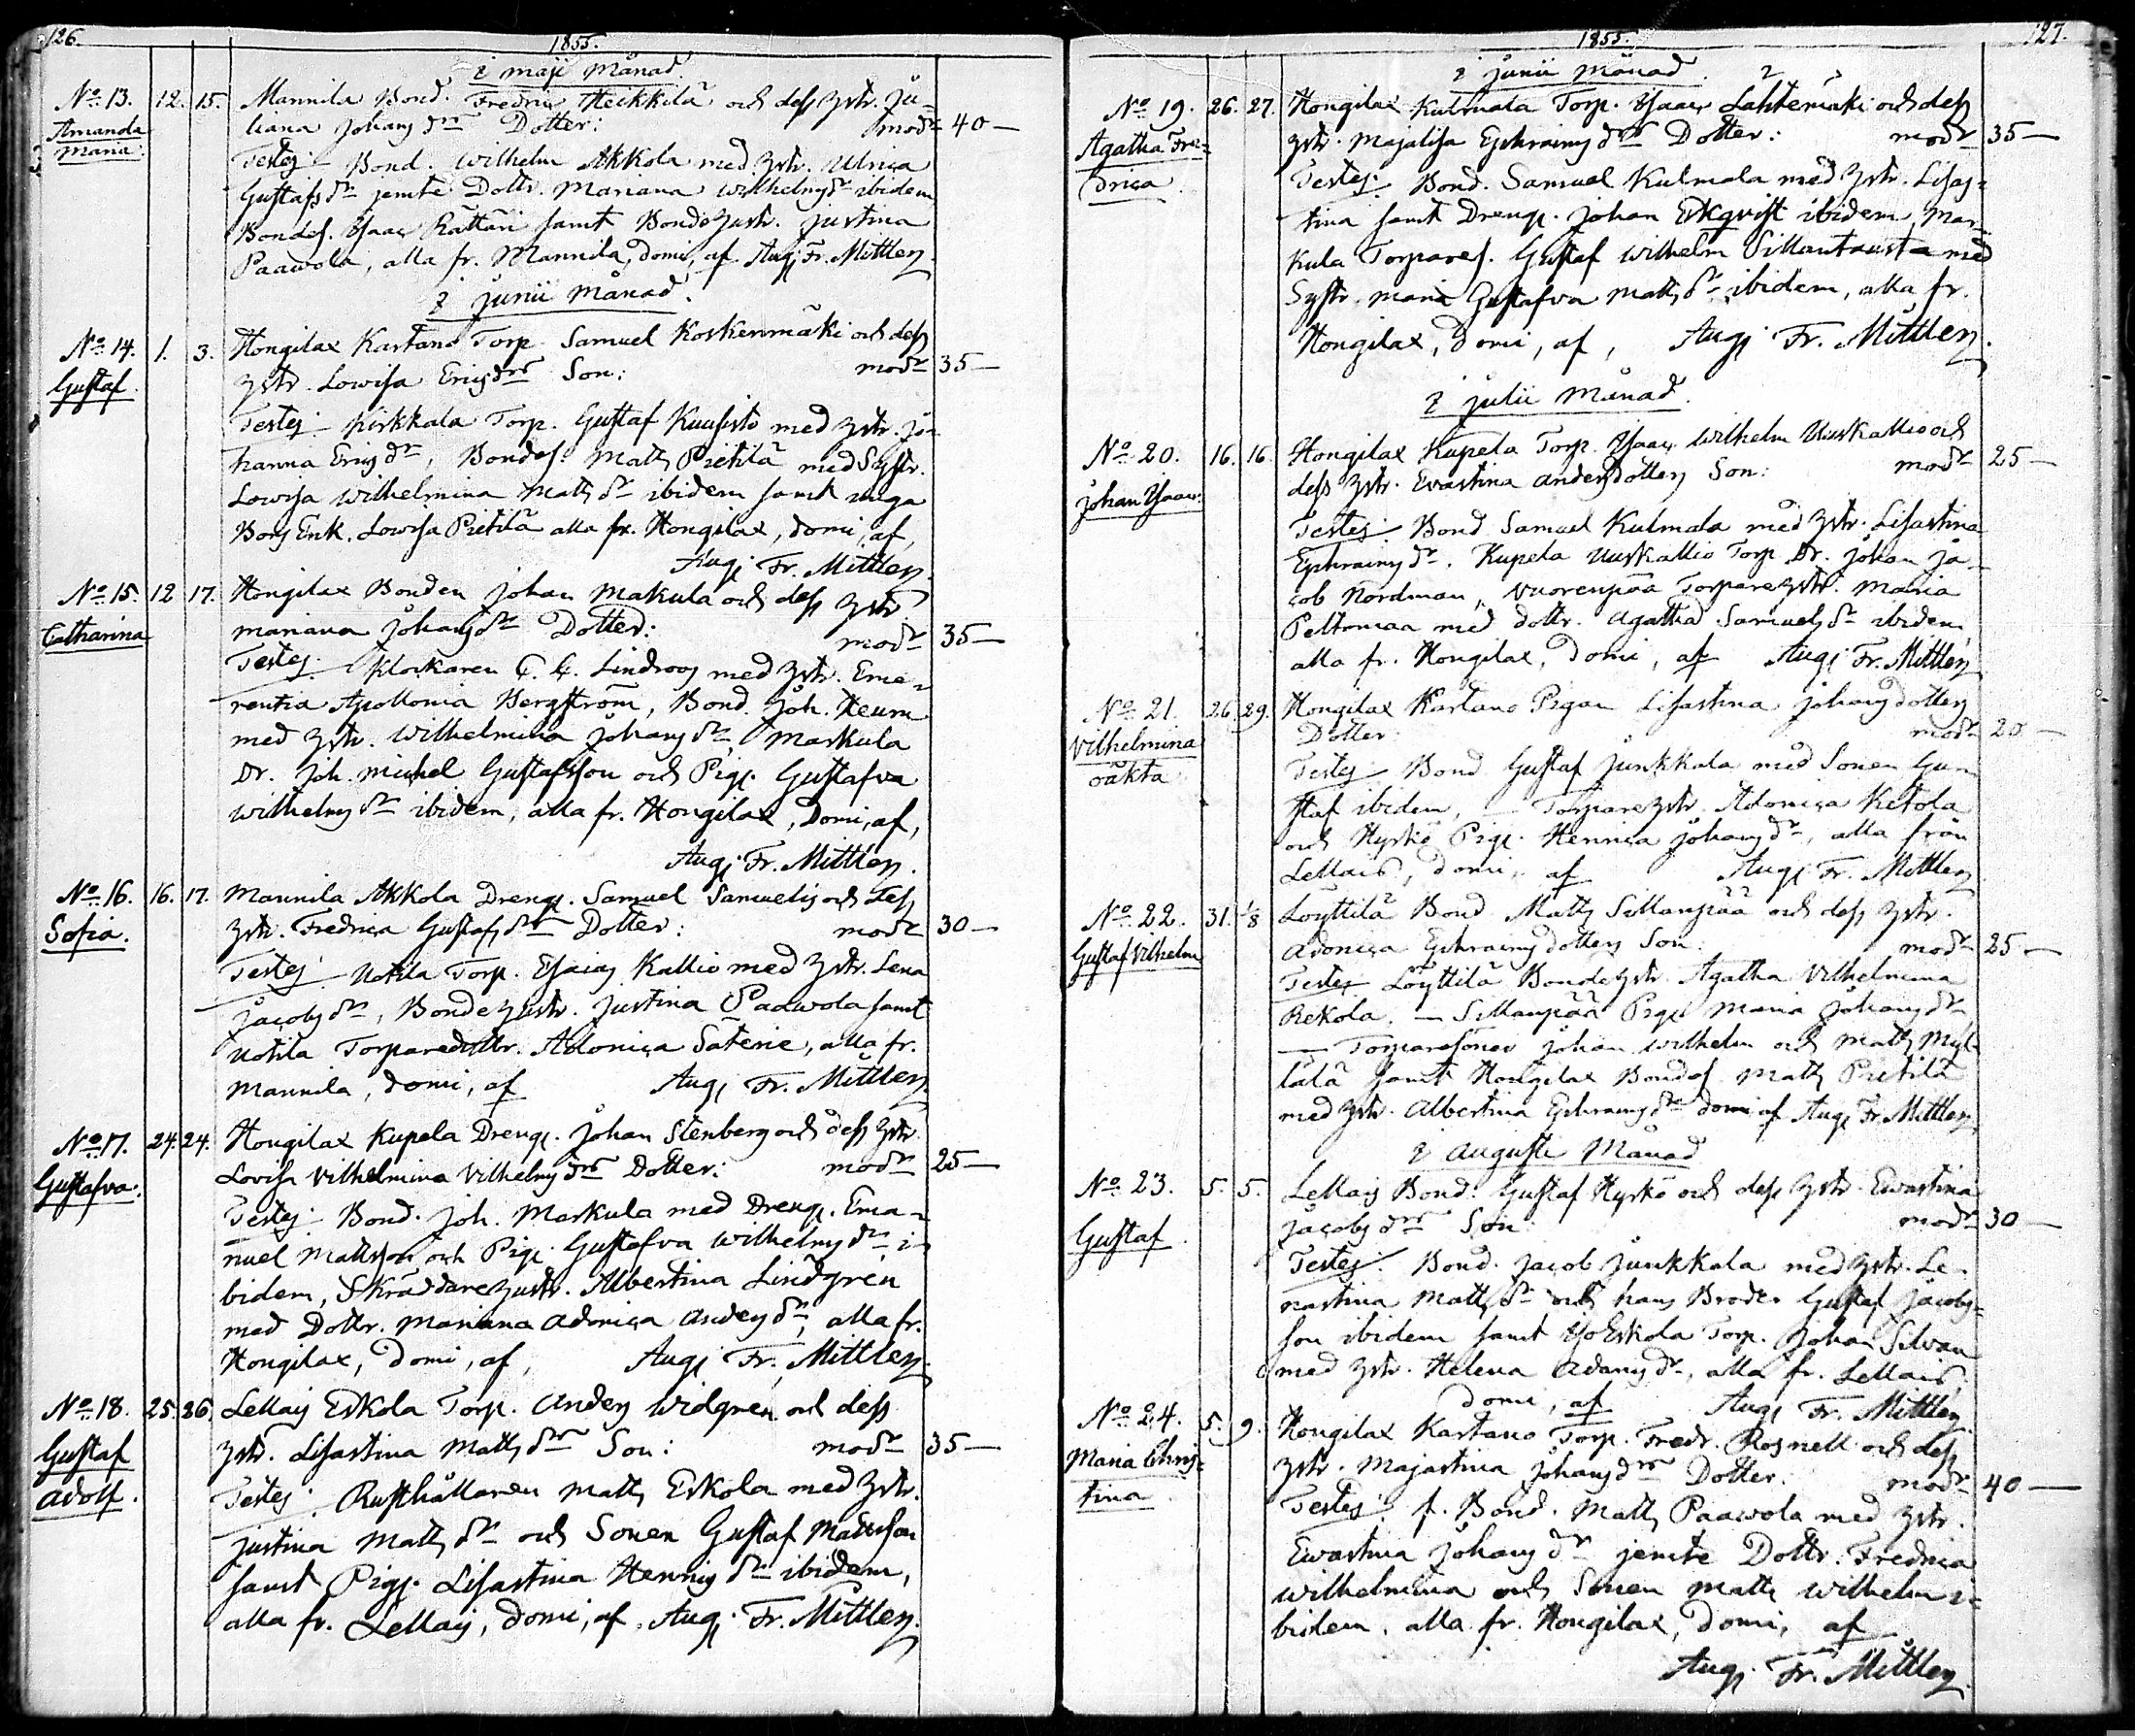 126.
1855.
i maji månad.
No. 13. 12. 15. Mannila Bond. Fredric Heikkilä och dess hstr. Ju-
Amanda liana Johans dr Dotter: modr 40 —
Maria. Testes: Bond. Wilhelm Akkola med hstr. Ulrica
Gustafs dr jemte Dottr. Mariana Wilhelms dr ibidem
Bondes. Isaac Rättäri samt Bondehustr. Justina
Paawola, alla fr. Mannila, domi, af Aug. Fr. Mittler.
i junii månad.
No. 14. 1. 3. Hongilax Kartano Torp. Samuel Koskenmäki och dess
Gustaf. hstr. Lowisa Erics drs Son: modr 35 —
Testes: Kirkkala Torp. Gustaf Kuusisto med hstr. Jo-
hanna Erics dr, Bondes. Matts Pietilä med Systr.
Lowisa Wilhelmina Matts dr ibidem samt unga
Enk. Lowisa Pietilä alla fr. Hongilax, domi, af,
Aug. Fr. Mittler.
No. 15. 12 17. Hongilax Bonden Johan Makula och dess hstr
Catharina Mariana Johans dr Dotter: modr 35 —
Testes: Klockaren C. G. Lindroos med hstr. Eme-
rentia Apollonia Bergström, Bond. Joh. Heurn
med hstr. Wilhelmina Johans dr, Markula
Dr. Joh. Michel Gustafsson och Pig. Gustafva
Wilhelms dr ibidem, alla fr. Hongilax, Domi, af,
Aug. Fr. Mittler.
No. 16. 16. 17. Mannila Akkola Dreng. Samuel Samuelis och dess
Sofia. hstr. Fredrica Gustafs dr Dotter: modr 30 —
Testes: Uotila Torp. Esaias Kallio med hstr. Lena
Jacobs dr, Bondehustr. Justina Paawola samt
Uotila Torparedottr. Adonica Säterie, alla fr.
Mannila, domi, af Aug. Fr. Mittler.
No. 17. 24. 24. Hongilax Kupela Dreng. Johan Stenberg och dess hstr.
Gustafva. Lovisa Vilhelmina Vilhelms drs Dotter: modr 25 —
Testes: Bond. Joh. Markula med Dreng. Ema-
nuel Mattsson och Pig. Gustafva Wilhelms dr i-
bidem, Skräddarehustr. Albertina Lindgren
med Dottr. Mariana Adonica Anders dr, alla fr.
Hongilax, Domi, af, Aug. Fr. Mittler.
No. 18. 25. 26. Lellais Eskola Torp. Anders Widgren och dess
Gustaf hstr. Lisastina Matts drs Son: modr 35 —
Adolf. Testes: Rusthållaren Matts Eskola med hstr.
Justina Matts dr och Sonen Gustaf Mattsson
samt Pig. Lisastina Hennigs dr ibidem,
alla fr. Lellais, domi, af, Aug. Fr. Mittler.
127.
1855.
i junii månad.
No. 19. 26. 27. Hongilax Kulmala Torp. Isaac Lähtemäki och dess
Agatha Fre- hstr. Majalisa Ephraims drs Dotter: modr 35 —
drica. Testes: Bond. Samuel Kulmala med hstr. Lisas-
tina samt Dreng. Johan Ekqvist ibidem, Mar-
kula Torpares. Gustaf Wilhelm Sillantausta med
Systr. Maria Gustafva Matts dr ibidem, alla fr.
Hongilax, domi, af, Aug. Fr. Mittler.
i julii månad.
No. 20. 16. 16. Hongilax Kupela Torp. Isaac Wilhelm Uuskallio och
Johan Isaac. dess hstr. Evastina Andersdotters Son: modr 25 —
Testes: Bond Samuel Kulmala med hstr. Lisastina
Ephraims dr. Kupela Uuskallio Torp. Dr. Johan Ja-
cob Nordman, Vuorenpää Torparehstr. Maria
Peltomaa med dottr. Agatha Samuels dr ibidem
alla fr. Hongilax, domi, af Aug. Fr. Mittler
No. 21. 26. 29. Hongilax Kartano Pigan Lisastina Johansdotters
Vilhelmina Dotter: modr 20 —
oäkta Testes: Bond Gustaf Junkkala med Sonen Gus-
taf ibidem, — Torparehstr. Adonica Ketola
och Hyrkö Pig. Henrica Johans dr, alla från
Lellais, domi, af Aug. Fr. Mittler
No. 22. 31. 1/8 Löyttilä Bond Matts Sillanpää och dess hstr.
Gustaf Vilhelm Adonica Ephraimsdotters Son: modr 25 —
Testes Löyttilä Bondehstr. Agatha Vilhelmina
Rekola. — Sillanpää Pig. Maria Johans dr
— Torparesöner Johan Wilhelm och Matts Myl-
lälä samt Hongilax Bondes. Matts Pietilä
med hstr. Albertina Ephraims dr domi af Aug. Fr. Mittler
i Augusti Månad
No. 23. 5. 5. Lellais Bond. Gustaf Hyrkö och dess hstr. Ewastina
Gustaf. Jacobs drs Son: modr 30 —
Testes: Bond. Jacob Junkkala med hstr. Le-
nastina Matts dr och hans Broder Gustaf Jacobs-
son ibidem samt Iso Eskola Torp. Johan Silvan
med hstr. Helena Adams dr, alla fr. Lellais,
domi, af Aug. Fr. Mittler.
No. 24. 5. 9. Hongilax Kartano Torp. Fredr. Rosnell och dess
Maria Chris- hstr. Majastina Johans drs Dotter: modr 40 —
tina. Testes: f. Bond. Matts Paawola med hstr.
Ewastina Johans dr jemte Dottr. Fredrica
Wilhelmina och Sonen Matts Wilhelm i-
bidem, alla fr. Hongilax, domi, af
Aug. Fr. Mittler.